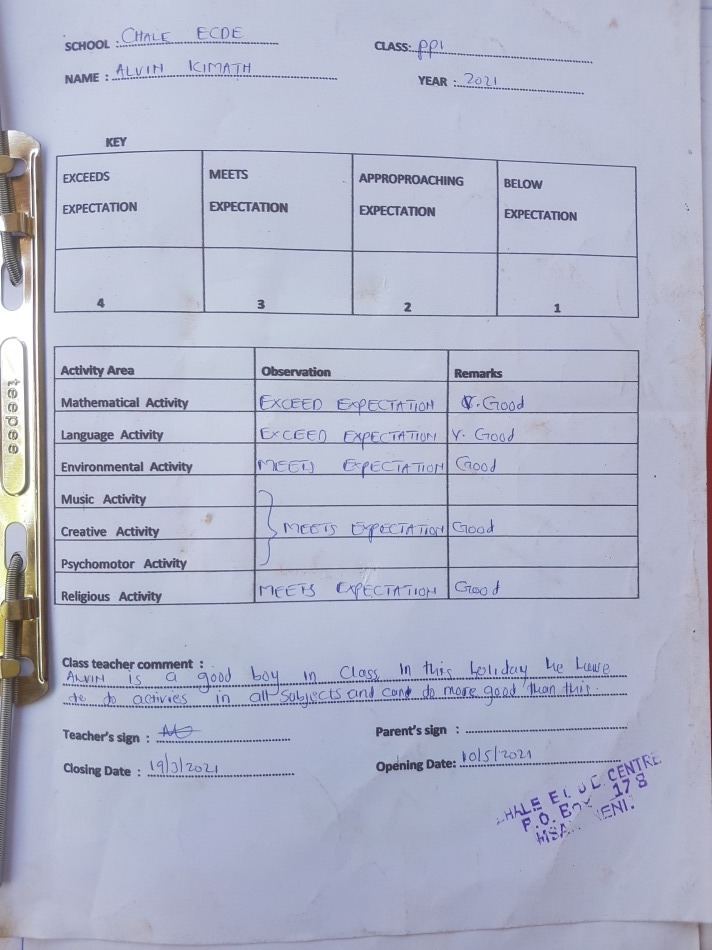 SCHOOL : CHALE ECDE CLASS: PP1
NAME : ALVIN KIMATH YEAR : 2021
KEY
EXCEEDS EXPECTATION MEETS EXPECTATION APPROPROACHING EXPECTATION BELOW EXPECTATION
4 3 2 1
Activity Area Observation Remarks
Mathematical Activity EXCEED EXPECTATION V. Good
Language Activity EXCEED EXPECTATION V. Good
Environmental Activity MEETS EXPECTATION Good
Music Activity
Creative Activity MEETS EXPECTATION Good
Psychomotor Activity
Religious Activity MEETS EXPECTATION Good
Class teacher comment :
ALVIN is a good boy in Class In this holiday he have
to do activies in all Subjects and can do more good than this.
Teacher's sign : Parent's sign :
Closing Date : 19/3/2021 Opening Date: 10/5/2021
CENTRE
P.O. BOX 178
teepee